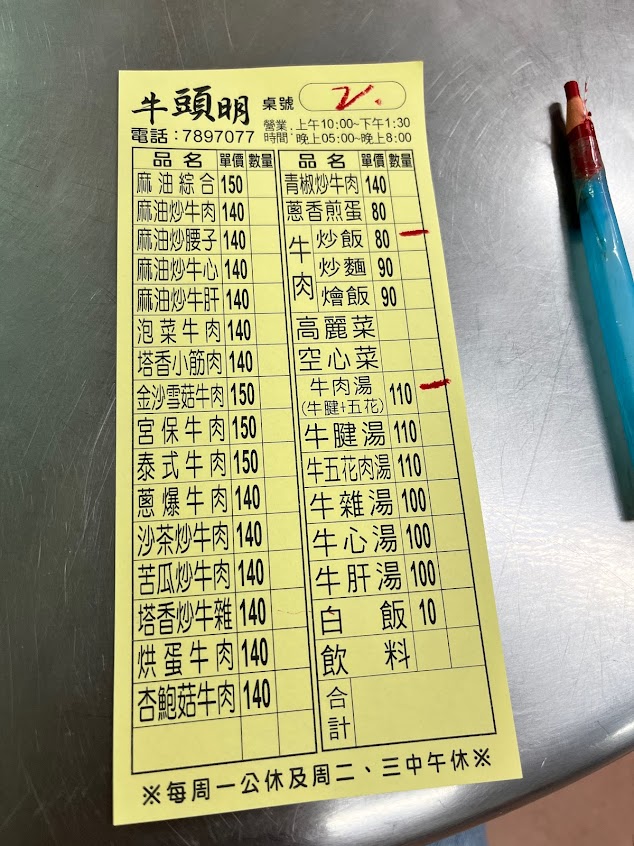 牛頭明 桌號 2.
電話:7897077 營業時間:上午10:00~下午1:30 晚上05:00~晚上8:00
品名 單價 數量
麻油綜合 150
麻油炒牛肉 140
麻油炒腰子 140
麻油炒牛心 140
麻油炒牛肝 140
泡菜牛肉 140
塔香小筋肉 140
金沙雪菇牛肉 150
宮保牛肉 150
泰式牛肉 150
蔥爆牛肉 140
沙茶炒牛肉 140
苦瓜炒牛肉 140
塔香炒牛雜 140
烘蛋牛肉 140
杏鮑菇牛肉 140
品名 單價 數量
青椒炒牛肉 140
蔥香煎蛋 80
牛肉
炒飯 80 一
炒麵 90
燴飯 90
高麗菜
空心菜
牛肉湯 110 一
(牛腱+五花)
牛腱湯 110
牛五花肉湯 110
牛雜湯 100
牛心湯 100
牛肝湯 100
白飯 10
飲料
合計
※每周一公休及周二、三中午休※